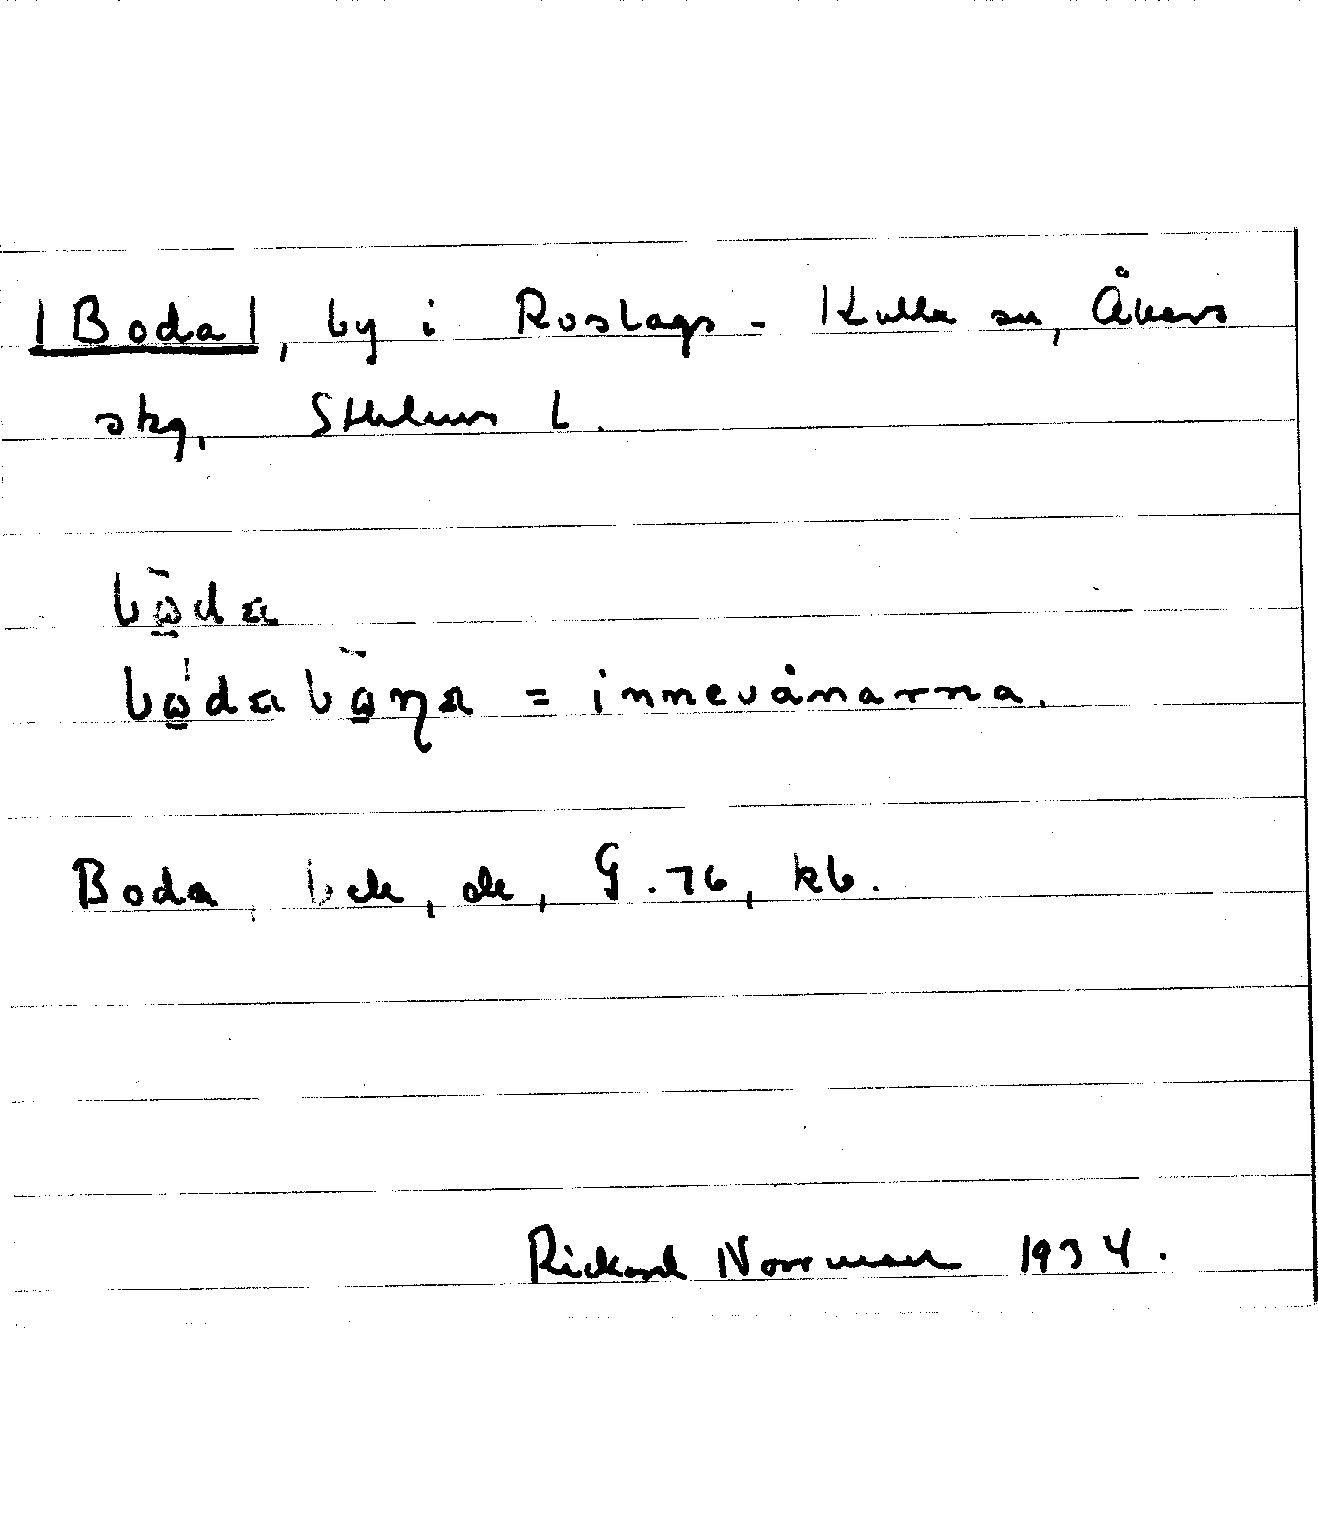 |Boda|, by i Roslags-Kulla sn, Åkers
skg, Sthlms l.
bo̱da
bo̱dabo̱ŋa = innevånarna.
Boda, bek, ek, G.76, kb.
Rickard Norrman 1934.